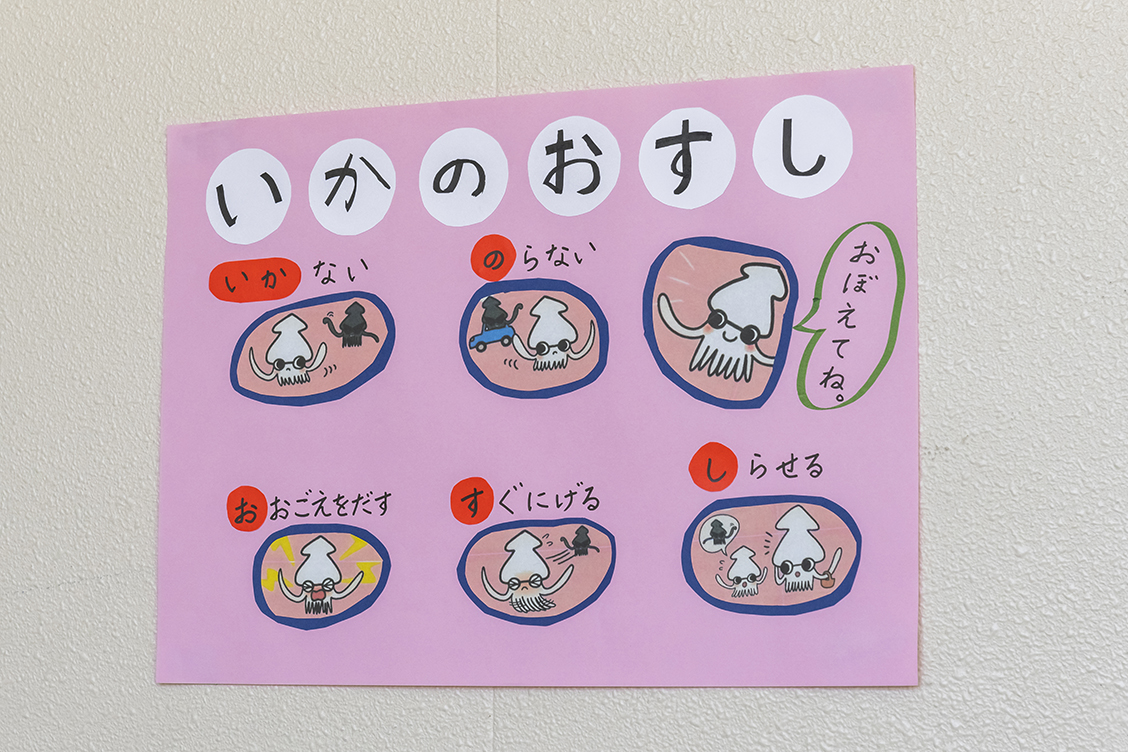 いかのおすし
いかない
のらない
おぼえてね。
おおごえをだす
すぐにげる
しらせる